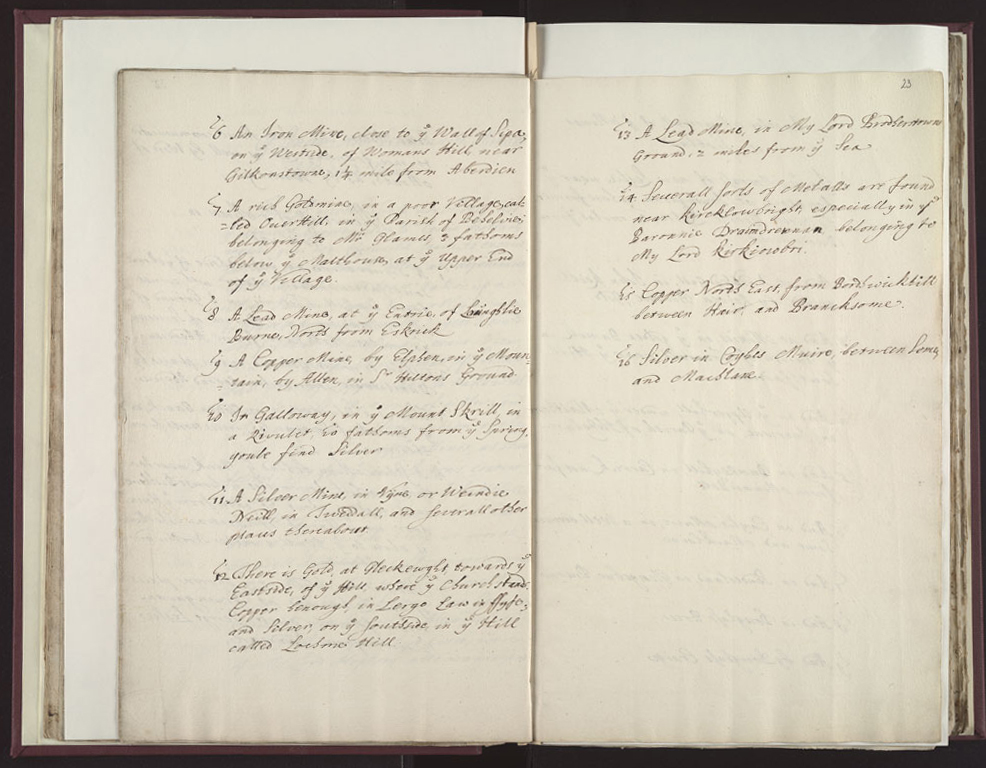 6 An Iron Mine, close to ye Wall of Sipa,
on ye Westside, of Womans Hill, near
Gilkonstowne, 1¼ mile from Aberdien
7 A rich Goldmine, in a poor Village, cal=
=led OverHill, in ye Parish of Beseline;
belonging to Mr Glames, 2 fathoms
below ye Malthouse, at ye Upper End
of ye Village.
8 A Lead Mine, at ye Entrie, of
Burne, North from Eskrick
9 A Copper Mine, by Elphen, in ye Moun=
=tain, by Allen, in Sr Hiltons Ground
10 In Galloway, in ye Mount Skrill, in
a Rivulet, 20 fathoms from ye Spring,
youle find Silver
11 A Silver Mine, in Kyne, or Weindie
Neill, in Tweddall, and severall other
places thereabout
12 There is Gold, at Gleckewght towards ye
Eastside, of ye Hill, where ye Church stands,
Copper henough, in Largo Law in ffyfe,
and Silver, on ye southside, in ye Hill
called Hill.
23
13 A Lead Mine, in My Lord
Ground, 2 miles from ye Sea
14 Severall sorts of Metalls are found
near Kircklowbright, especially in ye
Baronnie Draimdrennan belonging to
My Lord Kirkiowbri.
15 Copper North East, from Bordwickhill
between Hair, and Brancksome.
16 Silver in Coybes Muire, between
and Machlane.